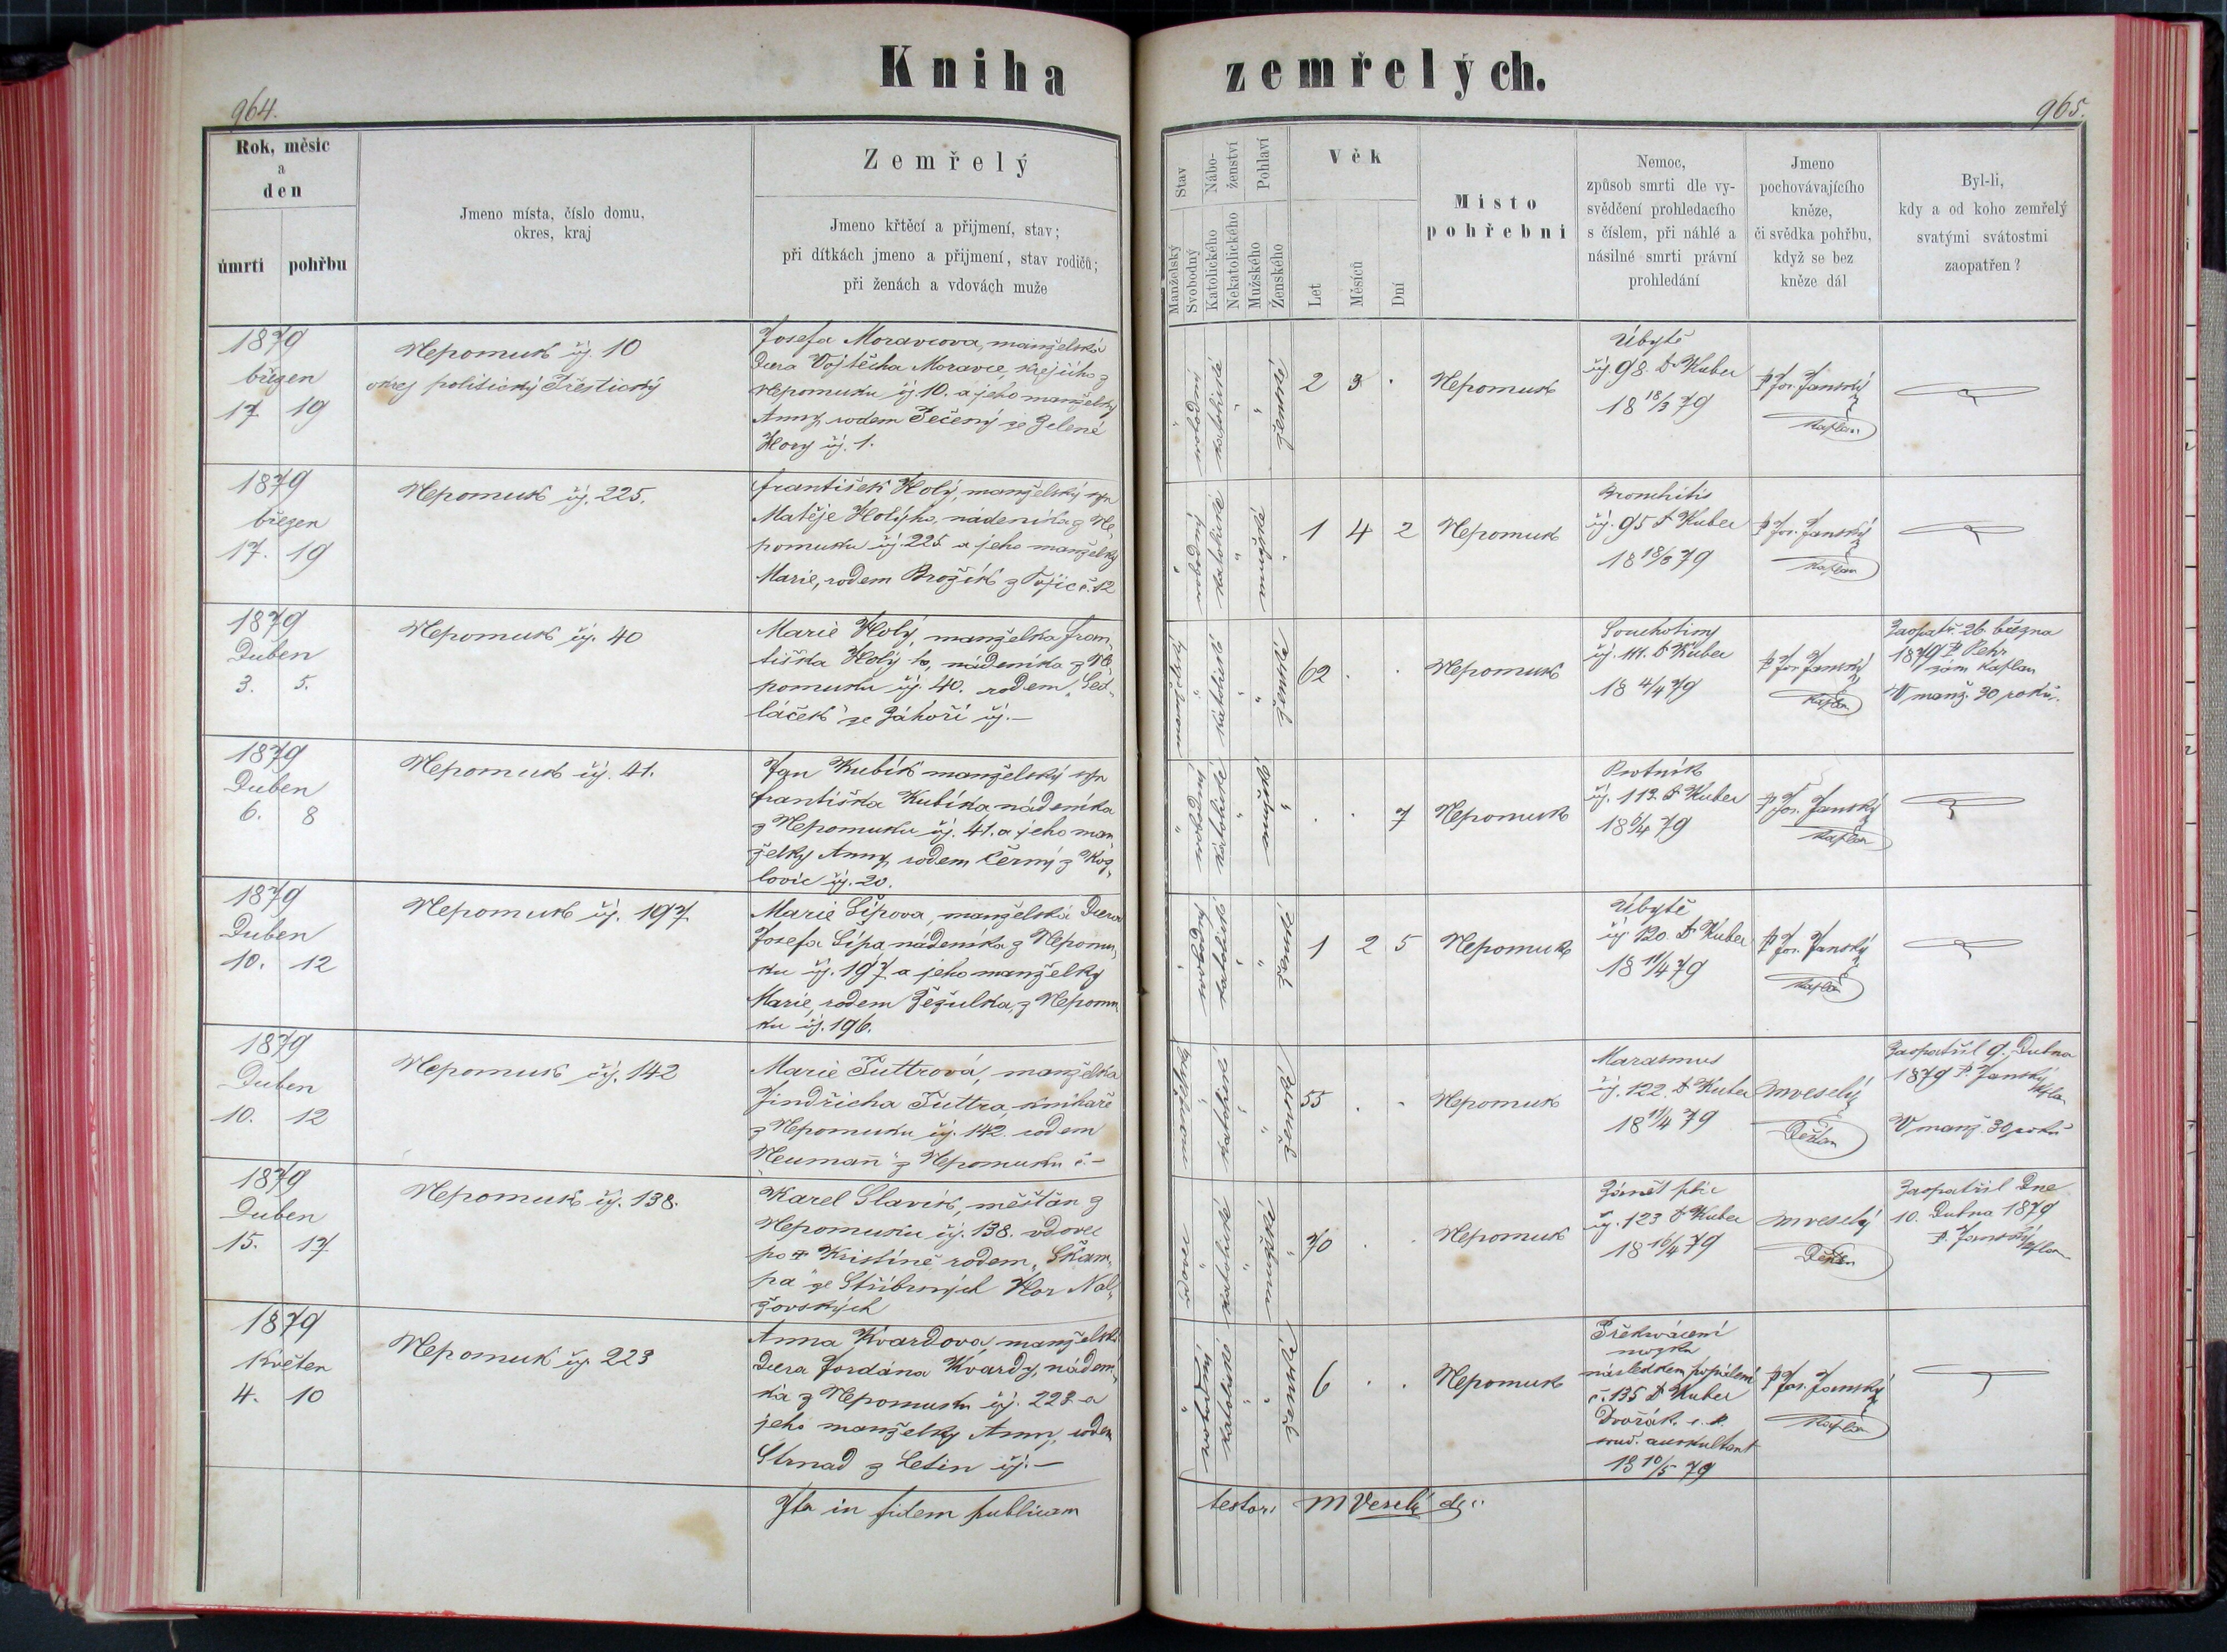 Kniha zemřelých.
964.
965.
Rok, měsíc
a
den
úmrtí
pohřbu
Jmeno místa, číslo domu,
okres, kraj
Zemřelý
Jmeno křtěcí a přijmení, stav;
při dítkách jmeno a přijmení, stav rodičů;
při ženách a vdovách muže
Stav
Manželský
Svobodný
Nábo-
ženství
Katolického
Nekatolického
Pohlaví
Mužského
Ženského
Věk
Let
Měsíců
Dní
Místo
pohřební
Nemoc,
způsob smrti dle vy-
svědčení prohledacího
s číslem, při náhlé a
násilné smrti právní
prohledání
Jmeno
pochovávajícího
kněze,
či svědka pohřbu,
když se bez
kněze dál
Byl-li,
kdy a od koho zemřelý
svatými svátostmi
zaopatřen?
1879
březen
17 19
Nepomuk čj. 10
okres politický Přeštický
Josefa Moravcova, manželská
dcera Vojtěcha Moravce, krejčího z
Nepomuku čj. 10. a jeho manželky
Anny, rodem Pečený ze Zelené
Hory čj. 1.
svobodný
katolické
ženské
2 3 .
Nepomuk
Úbytě
čj. 98. Dr Kuber
18 18/3 79
P Jos. Janský
Kaplan
1879
březen
17. 19
Nepomuk čj. 225.
František Holý, manželský syn
Matěje Holýho, nádeníka z Ne-
pomuku čj. 225 a jeho manželky
Marie, rodem Brožík z č. 12
svobodný
katolické
mužské
1 4 2
Nepomuk
Bronchitis
čj. 95 Dr Kuber
18 18/3 79
P Jos. Janský
Kaplan
1879
Duben
3. 5.
Nepomuk čj. 40
Marie Holý, manželka Fran-
tiška Holý ho, nádeníka z Ne-
pomuku čj. 40. rodem „Sed-
láček" ze Záhoří čj. —
katolické
ženské
62 . .
Nepomuk
Souchotiny
čj. 111. Dr Kuber
18 4/4 79
P Jos. Janský
Kaplan
Zaopatř. 26. března
1879 P. Petr
zám. Kaplan
V manž. 30 roků.
1879
Duben
6. 8
Nepomuk čj. 41.
Jan Kubík manželský syn
Františka Kubíka, nádeníka
z Nepomuku čj. 41. a jeho man-
želky Anny, rodem Černý z Koz-
lovic čj. 20.
svobodný
katolické
mužské
. . 7
Nepomuk
Psotník
čj. 112. Dr Kuber
18 6/4 79
P Jos. Janský
Kaplan
1879
Duben
10. 12
Nepomuk čj. 197.
Marie Šípova, manželská dcera
Josefa Šípa nádeníka z Nepomu-
ku čj. 197 a jeho manželky
Marie, rodem Žežulka, z Nepomu
ku čj. 196.
svobodný
katolické
ženské
1 2 5
Nepomuk
Úbytě
čj. 120. Dr Kuber
18 11/4 79
P Jos. Janský
Kaplan
1879
Duben
10. 12
Nepomuk čj. 142
Marie Tuttrová, manželka
Jindřicha Tuttra, knihaře
z Nepomuku čj. 142. rodem
„Neumann" z Nepomuku č. —
katolické
ženské
55 . .
Nepomuk
Marasmus
čj. 122. Dr Kuber
18 11/4 79
M Veselý
Děkan
Zaopatřil 9. Dubna
1879 P. Janský
Kaplan
V manž. 30 roků
1879
Duben
15. 17
Nepomuk čj. 138.
Karel Slavík, měšťan z
Nepomuku čj. 138. vdovec
po † Kristině rodem „Škam-
pa" ze Stříbrných Hor Nal-
žovských
vdovec
katolické
mužské
70 . .
Nepomuk
Zánět plic
čj. 123 Dr Kuber
18 16/4 79
M Veselý
Děkan
Zaopatřil dne
10. Dubna 1879
P. Janský Kaplan
1879
Květen
4. 10
Nepomuk čj. 223
Anna Kvardova, manželská
dcera Jordána Kvardy, nádení-
ka z Nepomuku čj. 223 a
jeho manželky Anny, rodem
Strnad z Letin čj. —
svobodný
katolické
ženské
6 . .
Nepomuk
Překrvácení
mozku
následkem popálení
č. 135 Dr Kuber
Dvořák. c. k.
soud. auskultant
18 10/5 79
P Jos. Janský
Kaplan
Ita in fidem publicam
testor M Veselý